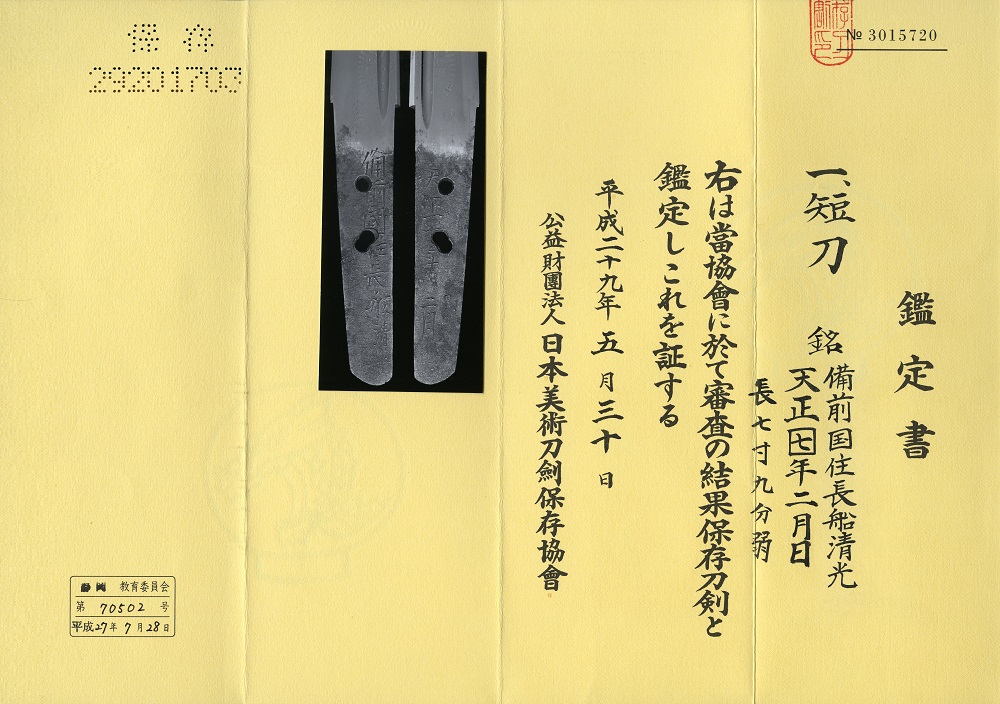 № 3015720
鑑定書
一、短刀
銘 備前国住長船清光
天正七年二月日
長七寸九分弱
右は當協會に於て審査の結果保存刀剣と
鑑定しこれを証する
平成二十九年五月三十日
公益財團法人日本美術刀劍保存協會
保存
29201703
備前国住長船清
二月
静岡 教育委員会
第 70502 号
平成27年7月28日